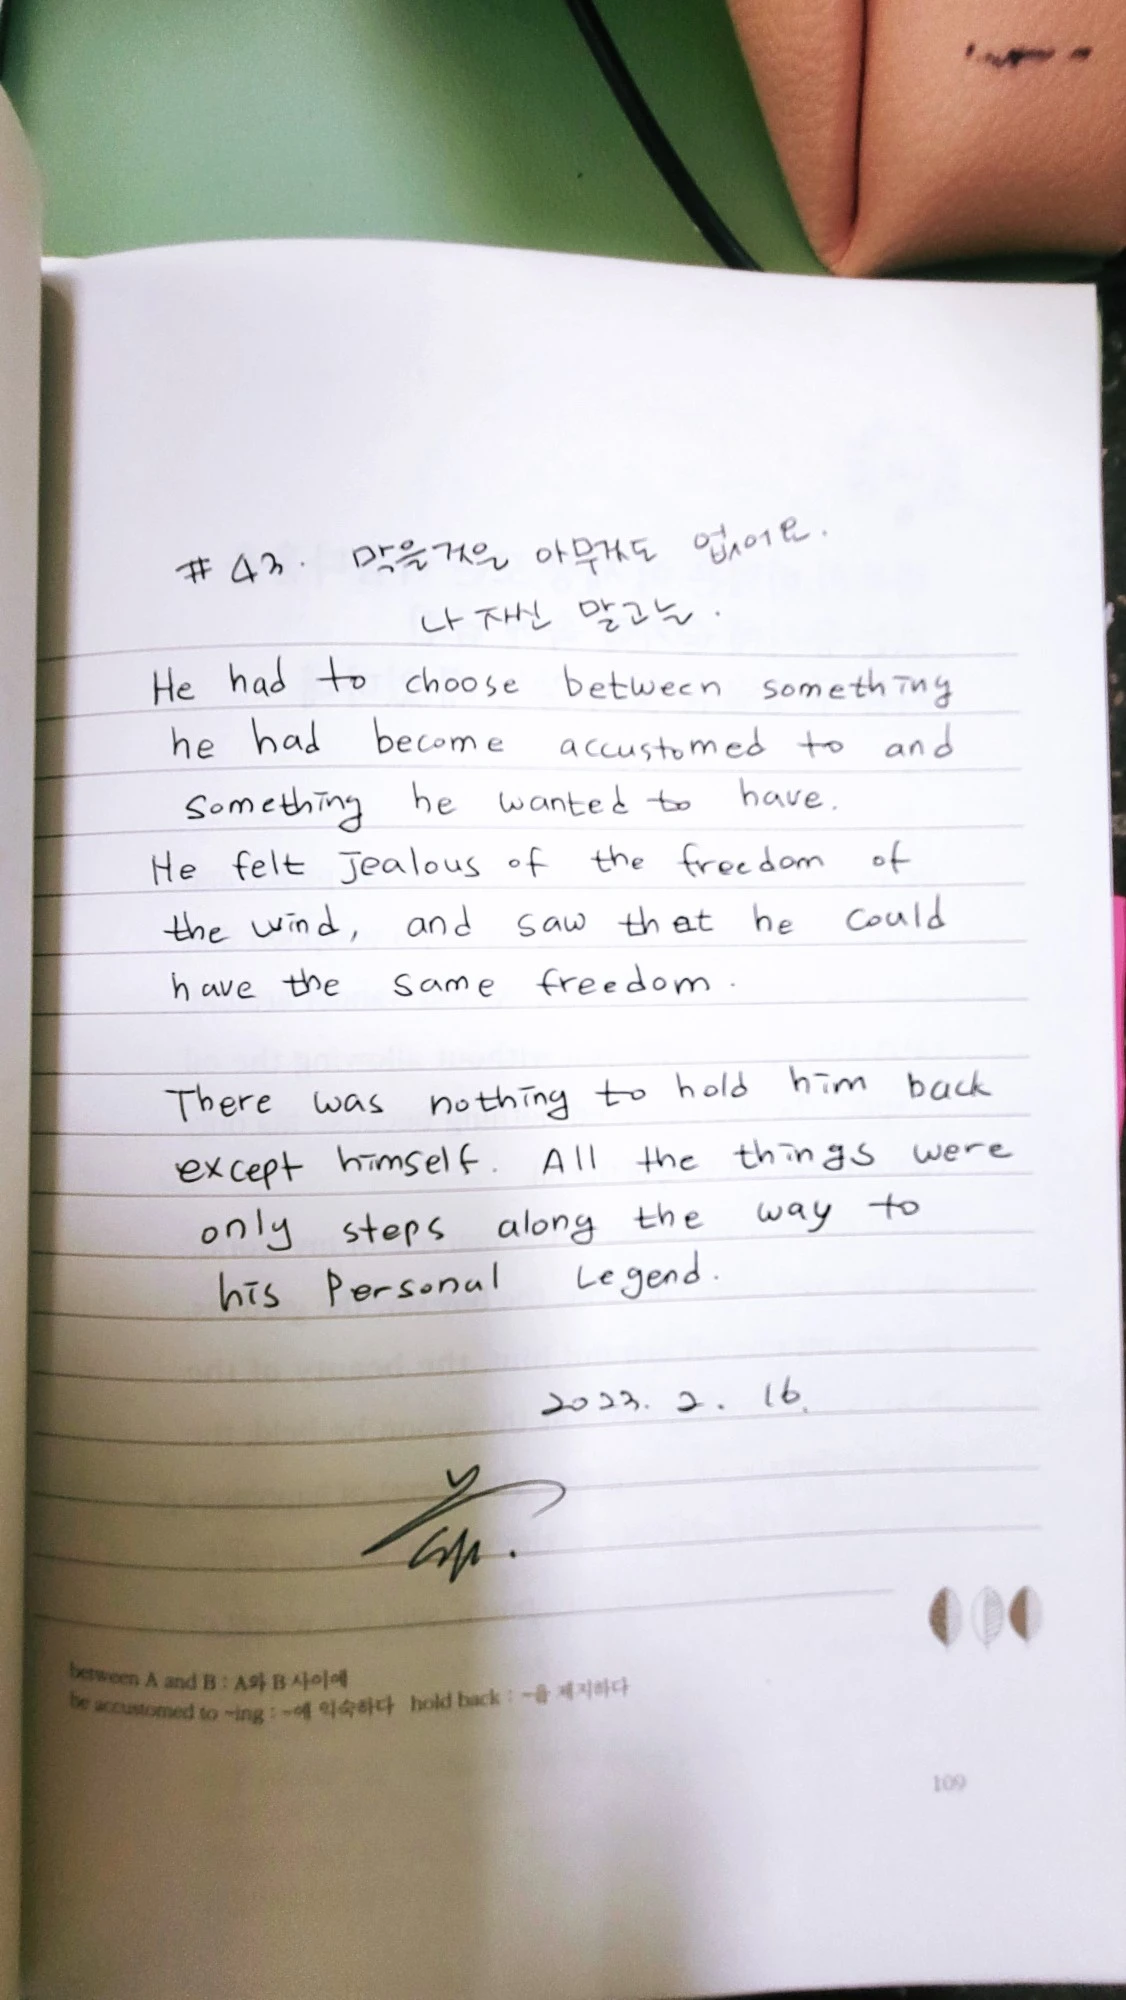 #43. 막을것은 아무것도 없어요.
나 자신 말고는.
He had to choose between something
he had become accustomed to and
something he wanted to have.
He felt jealous of the freedom of
the wind, and saw that he could
have the same freedom.
There was nothing to hold him back
except himself. All the things were
only steps along the way to
his Personal Legend.
2023. 2. 16.
between A and B : A와 B 사이에
be accustomed to ~ing : ~에 익숙하다 hold back : ~을 제지하다
109